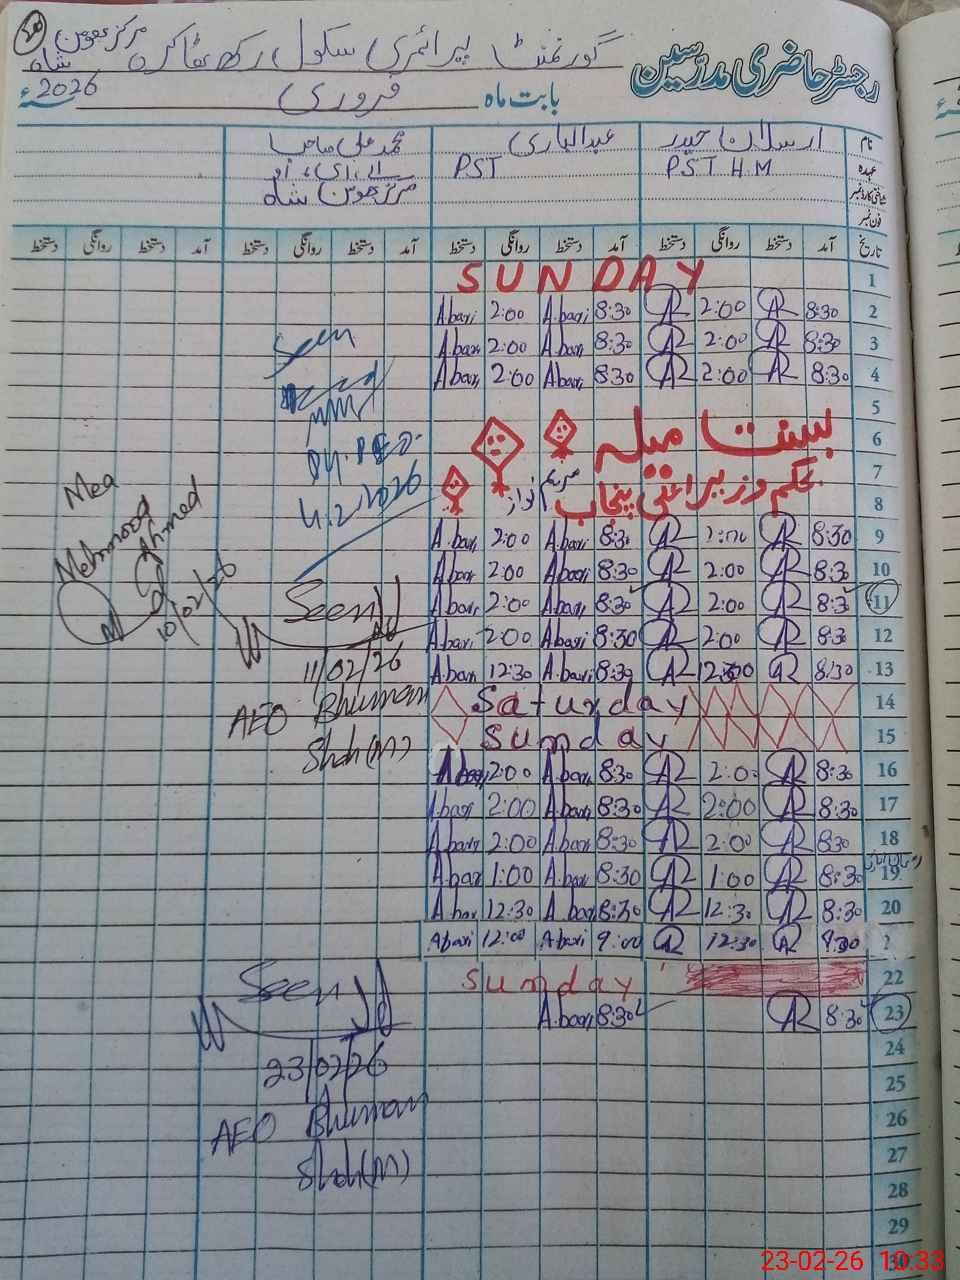 گورنمنٹ پرائمری سکول رکھ بھٹاکرہ مرکز بھومن شاہ
رجسٹر حاضری مدرّسین
بابت ماہ فروری 2026ء
نام ارسلان حیدر عبدالباری محمد علی صاحب
عہدہ PST H.M PST اے، ای، او
شناختی کارڈ نمبر مرکز بھومن شاہ
فون نمبر
تاریخ آمد دستخط روانگی دستخط آمد دستخط روانگی دستخط آمد دستخط روانگی دستخط آمد دستخط روانگی دستخط
SUNDAY 1
A.bari 2:00 A.bari 8:30 AR 2:00 AR 8:30 2
A.bari 2:00 A.bari 8:30 AR 2:00 AR 8:30 3
A.bari 2:00 A.bari 8:30 AR 2:00 AR 8:30 4
Seen
5
بسنت میلہ 6
بحکم وزیر اعلیٰ پنجاب مریم نواز 7
8
4.2.2026
A.bari 2:00 A.bari 8:30 AR 2:00 AR 8:30 9
A.bari 2:00 A.bari 8:30 AR 2:00 AR 8:30 10
A.bari 2:00 A.bari 8:30 AR 2:00 AR 8:30 11
A.bari 2:00 A.bari 8:30 AR 2:00 AR 8:30 12
A.bari 12:30 A.bari 8:30 AR 12:30 AR 8:30 13
Mea
Mehmood Ahmed
10/02/26
Seen
11/02/26
AEO Bhuman
Shah(M)
Saturday 14
Sunday 15
A.bari 2:00 A.bari 8:30 AR 2:00 AR 8:30 16
A.bari 2:00 A.bari 8:30 AR 2:00 AR 8:30 17
A.bari 2:00 A.bari 8:30 AR 2:00 AR 8:30 18
A.bari 1:00 A.bari 8:30 AR 1:00 AR 8:30 19
A.bari 12:30 A.bari 8:30 AR 12:30 AR 8:30 20
A.bari 12:00 A.bari 9:00 AR 12:30 AR 8:30
Sunday 22
A.bari 8:30 AR 8:30 23
Seen
23/02/26
AEO Bhuman
Shah(M)
24
25
26
27
28
29
30
23-02-26 10:33